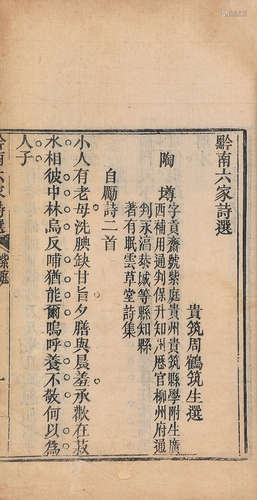 黔南六家詩選
貴筑周鶴筑生選
陶㙔
字貢齋號紫庭貴州貴筑縣學附生廣
西補用通判保升知州歷官柳州府通
判永淳恭城等縣知縣
著有眠雲草堂詩集
自勵詩二首
小人有老母洗腆缺甘旨夕膳與晨羞承歡在菽
水相彼中林烏反哺猶能爾嗚呼養不敬何以為
人子
黔南六家詩選
紫庭
一